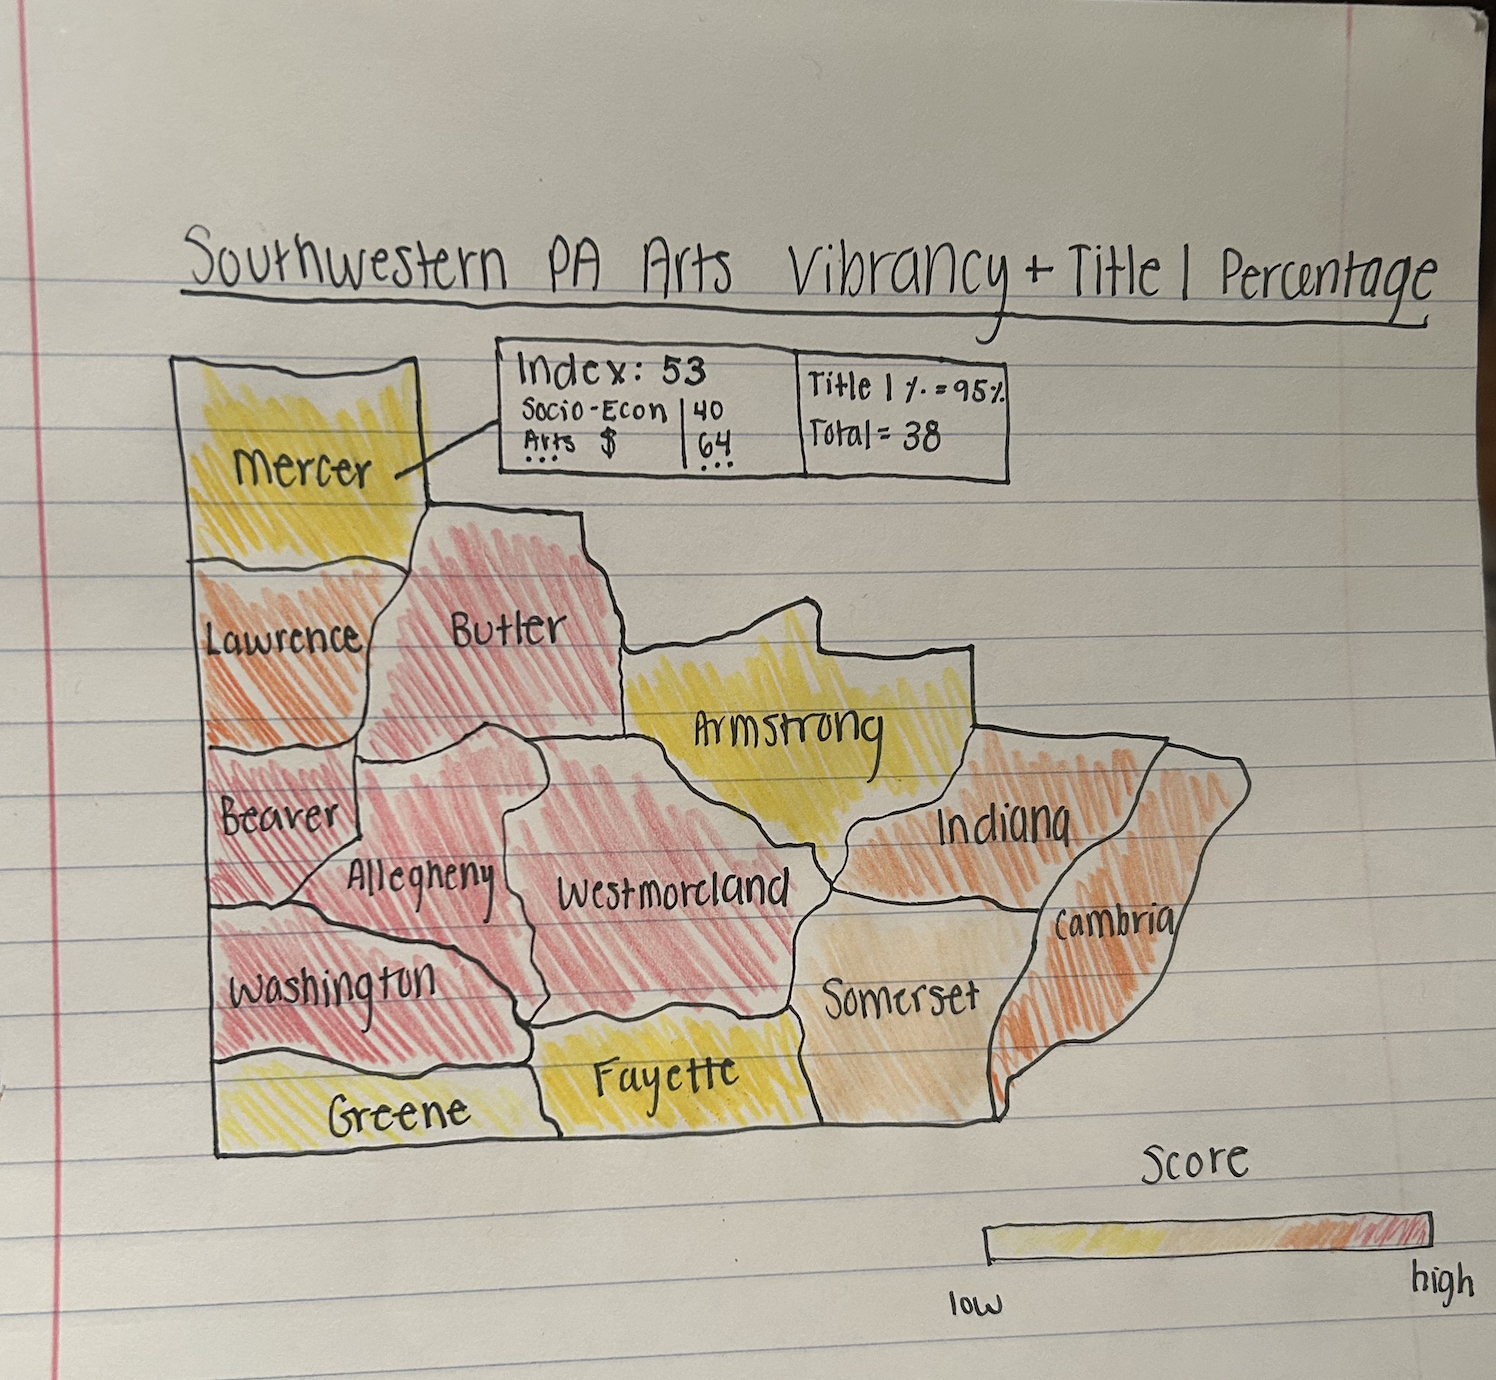 Southwestern PA Arts Vibrancy + Title 1 Percentage
Index: 53
Socio-Econ | 40
Arts $ | 64
... ...
Title 1 % = 95%
Total = 38
Mercer
Lawrence
Butler
Armstrong
Beaver
Allegheny
Westmoreland
Indiana
Cambria
Washington
Somerset
Greene
Fayette
Score
low
high